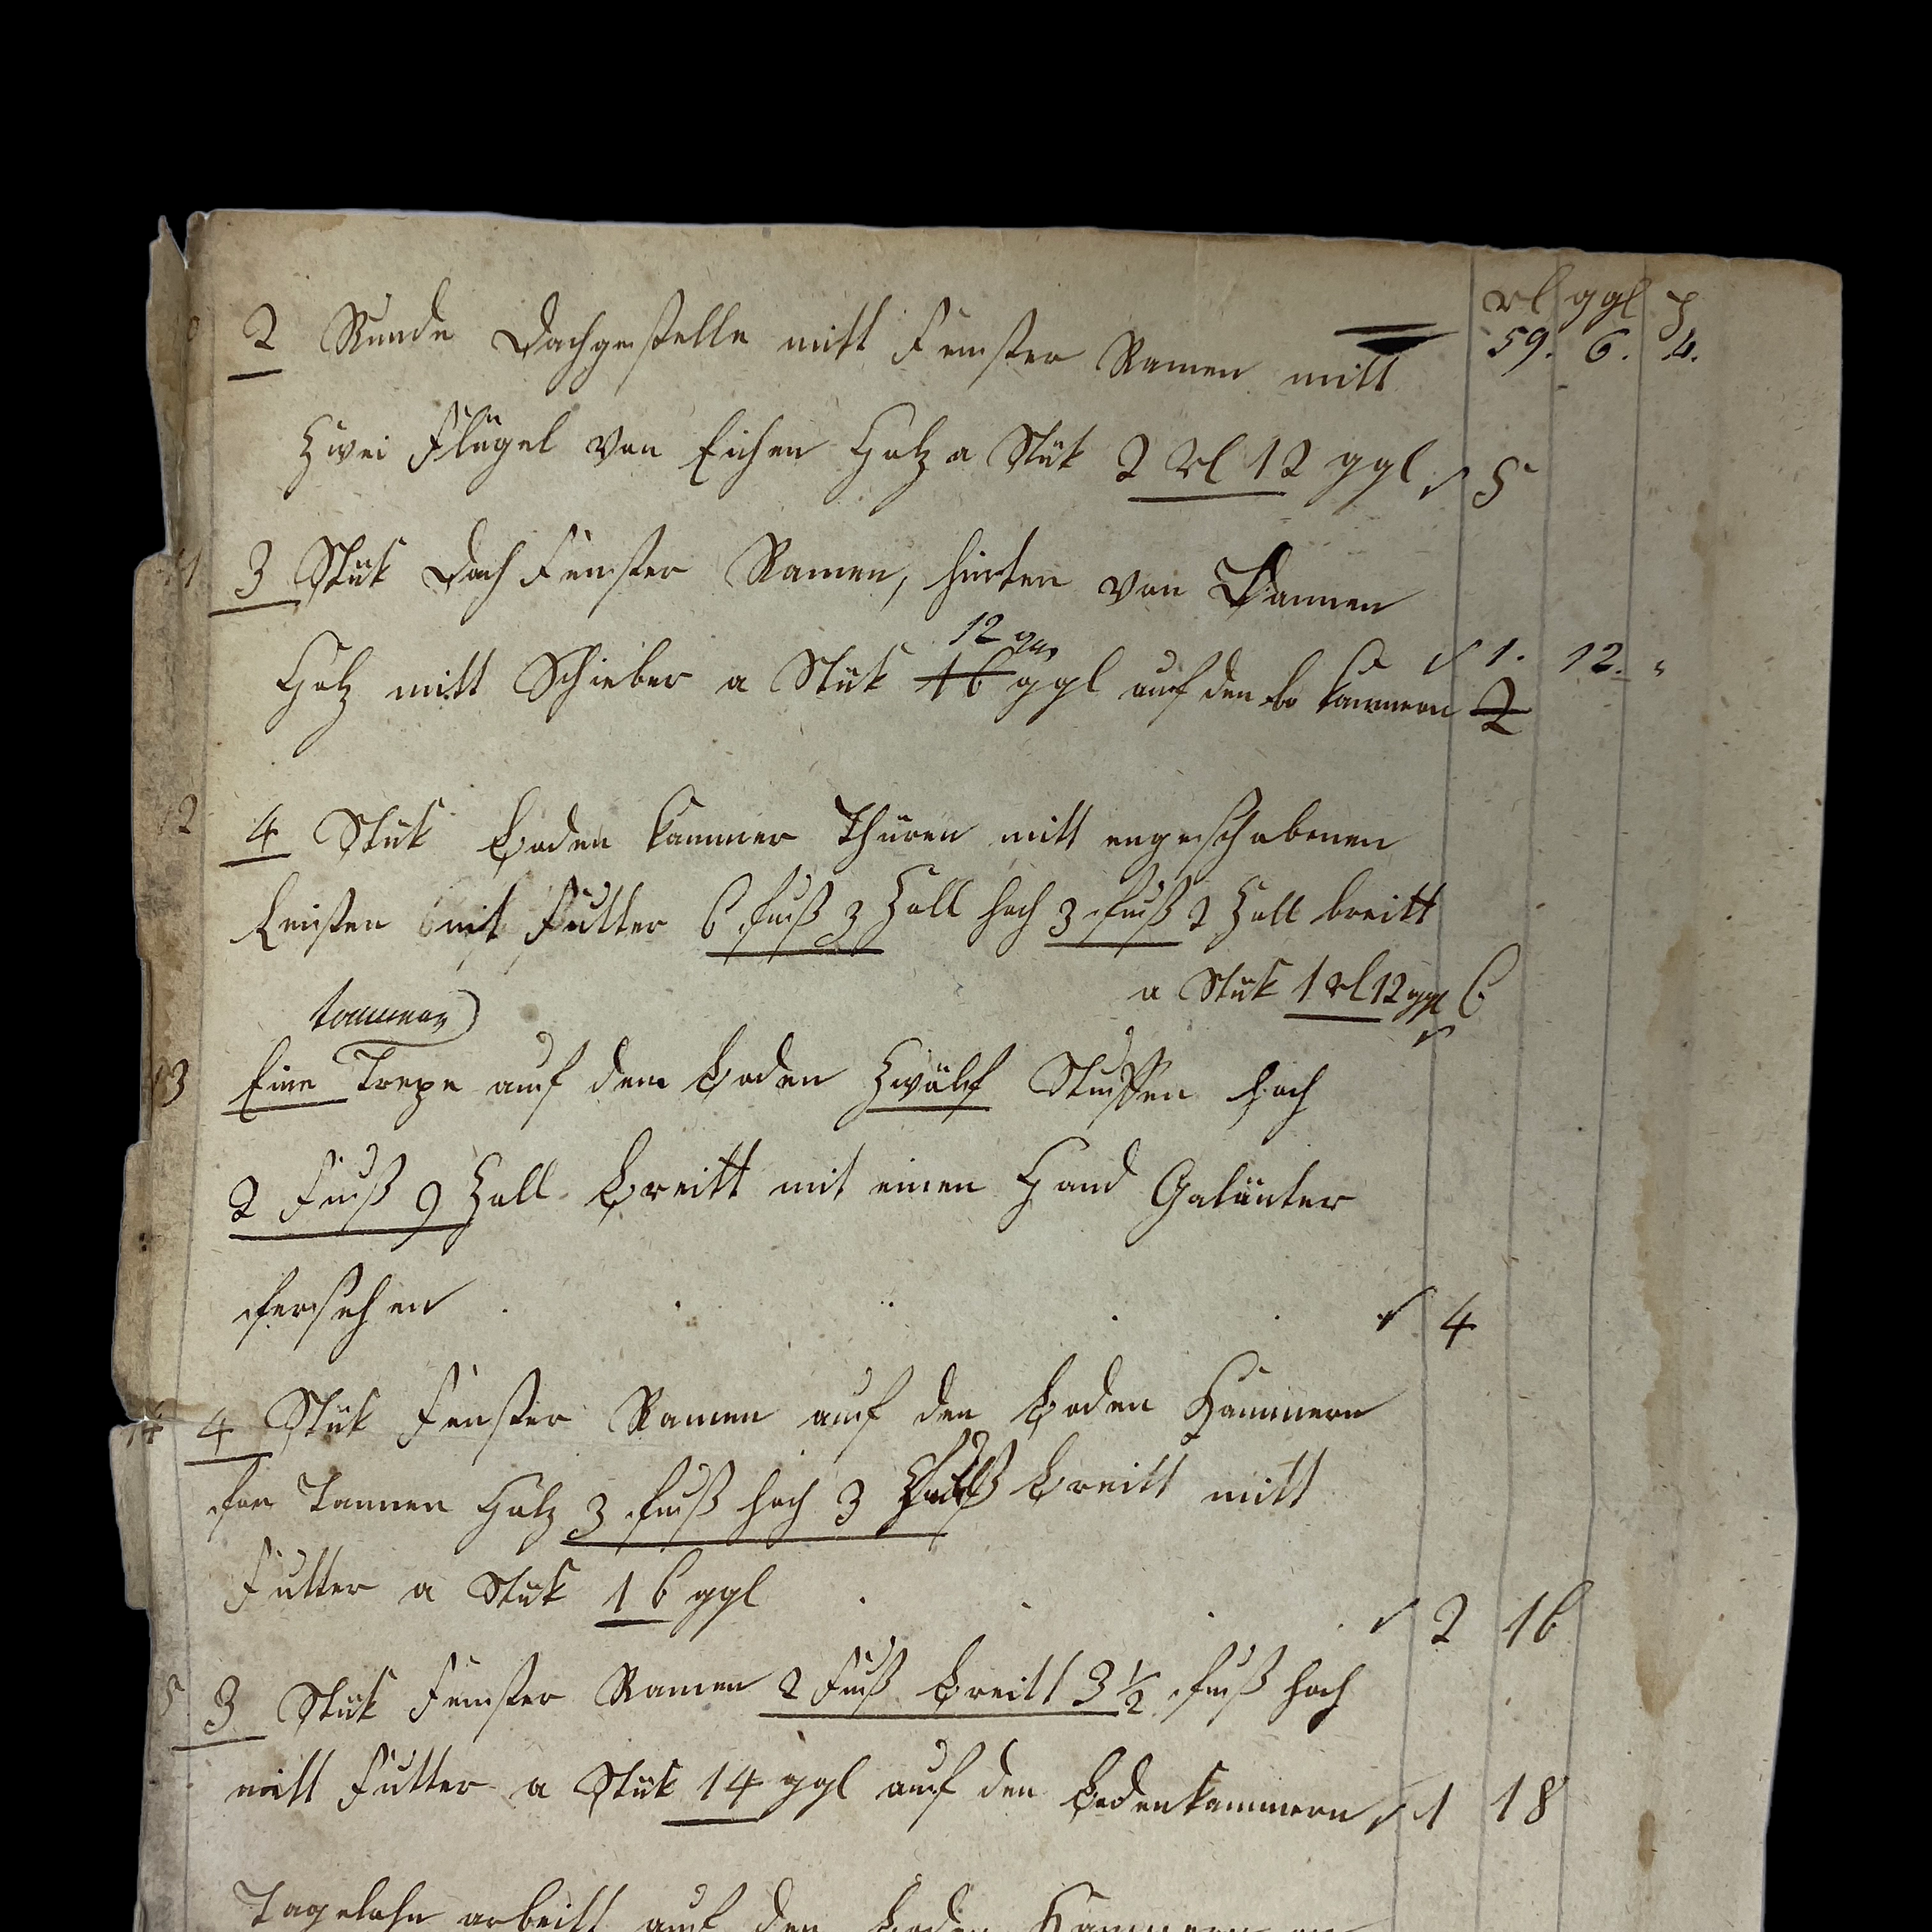 rl ggl ₰
2 Runde Dachgestelle mitt Fenster Ramen mitt 59. 6. 4.
Zwei Flügel von Eichen Holz a Stük 2 rl 12 ggl 5
3 Stük Dach Fenster Ramen, hinten von Dannen
12 ggl
Holz mitt Schieber a Stük 16 ggl auf den bo kammern 1. 12. "
2
12 4 Stük Boden kammer Thüren mitt engeschobenen
Leisten mit Futter 6 fuß 3 Zoll hoch 3 fuß 2 Zoll breitt
a Stük 1 rl 12 ggl 6
tannen
13 Eine Trepe auf dem Boden Zwölf Stuffen hoch
2 Fuß 9 Zoll Breitt mit einen Hand Galänter
fersehen 4
14 4 Stük Fenster Ramen auf den Boden Kammern
fon Tannen Holz 3 fuß hoch 3 fuß Breitt mitt
Futter a Stük 16 ggl 2 16
5 3 Stük Fenster Ramen 2 Fuß Breitt 3 1/2 fuß hoch
mitt Futter a Stük 14 ggl auf den Bodenkammern 1 18
Tagelohn arbeitt auf den Boden Kammern